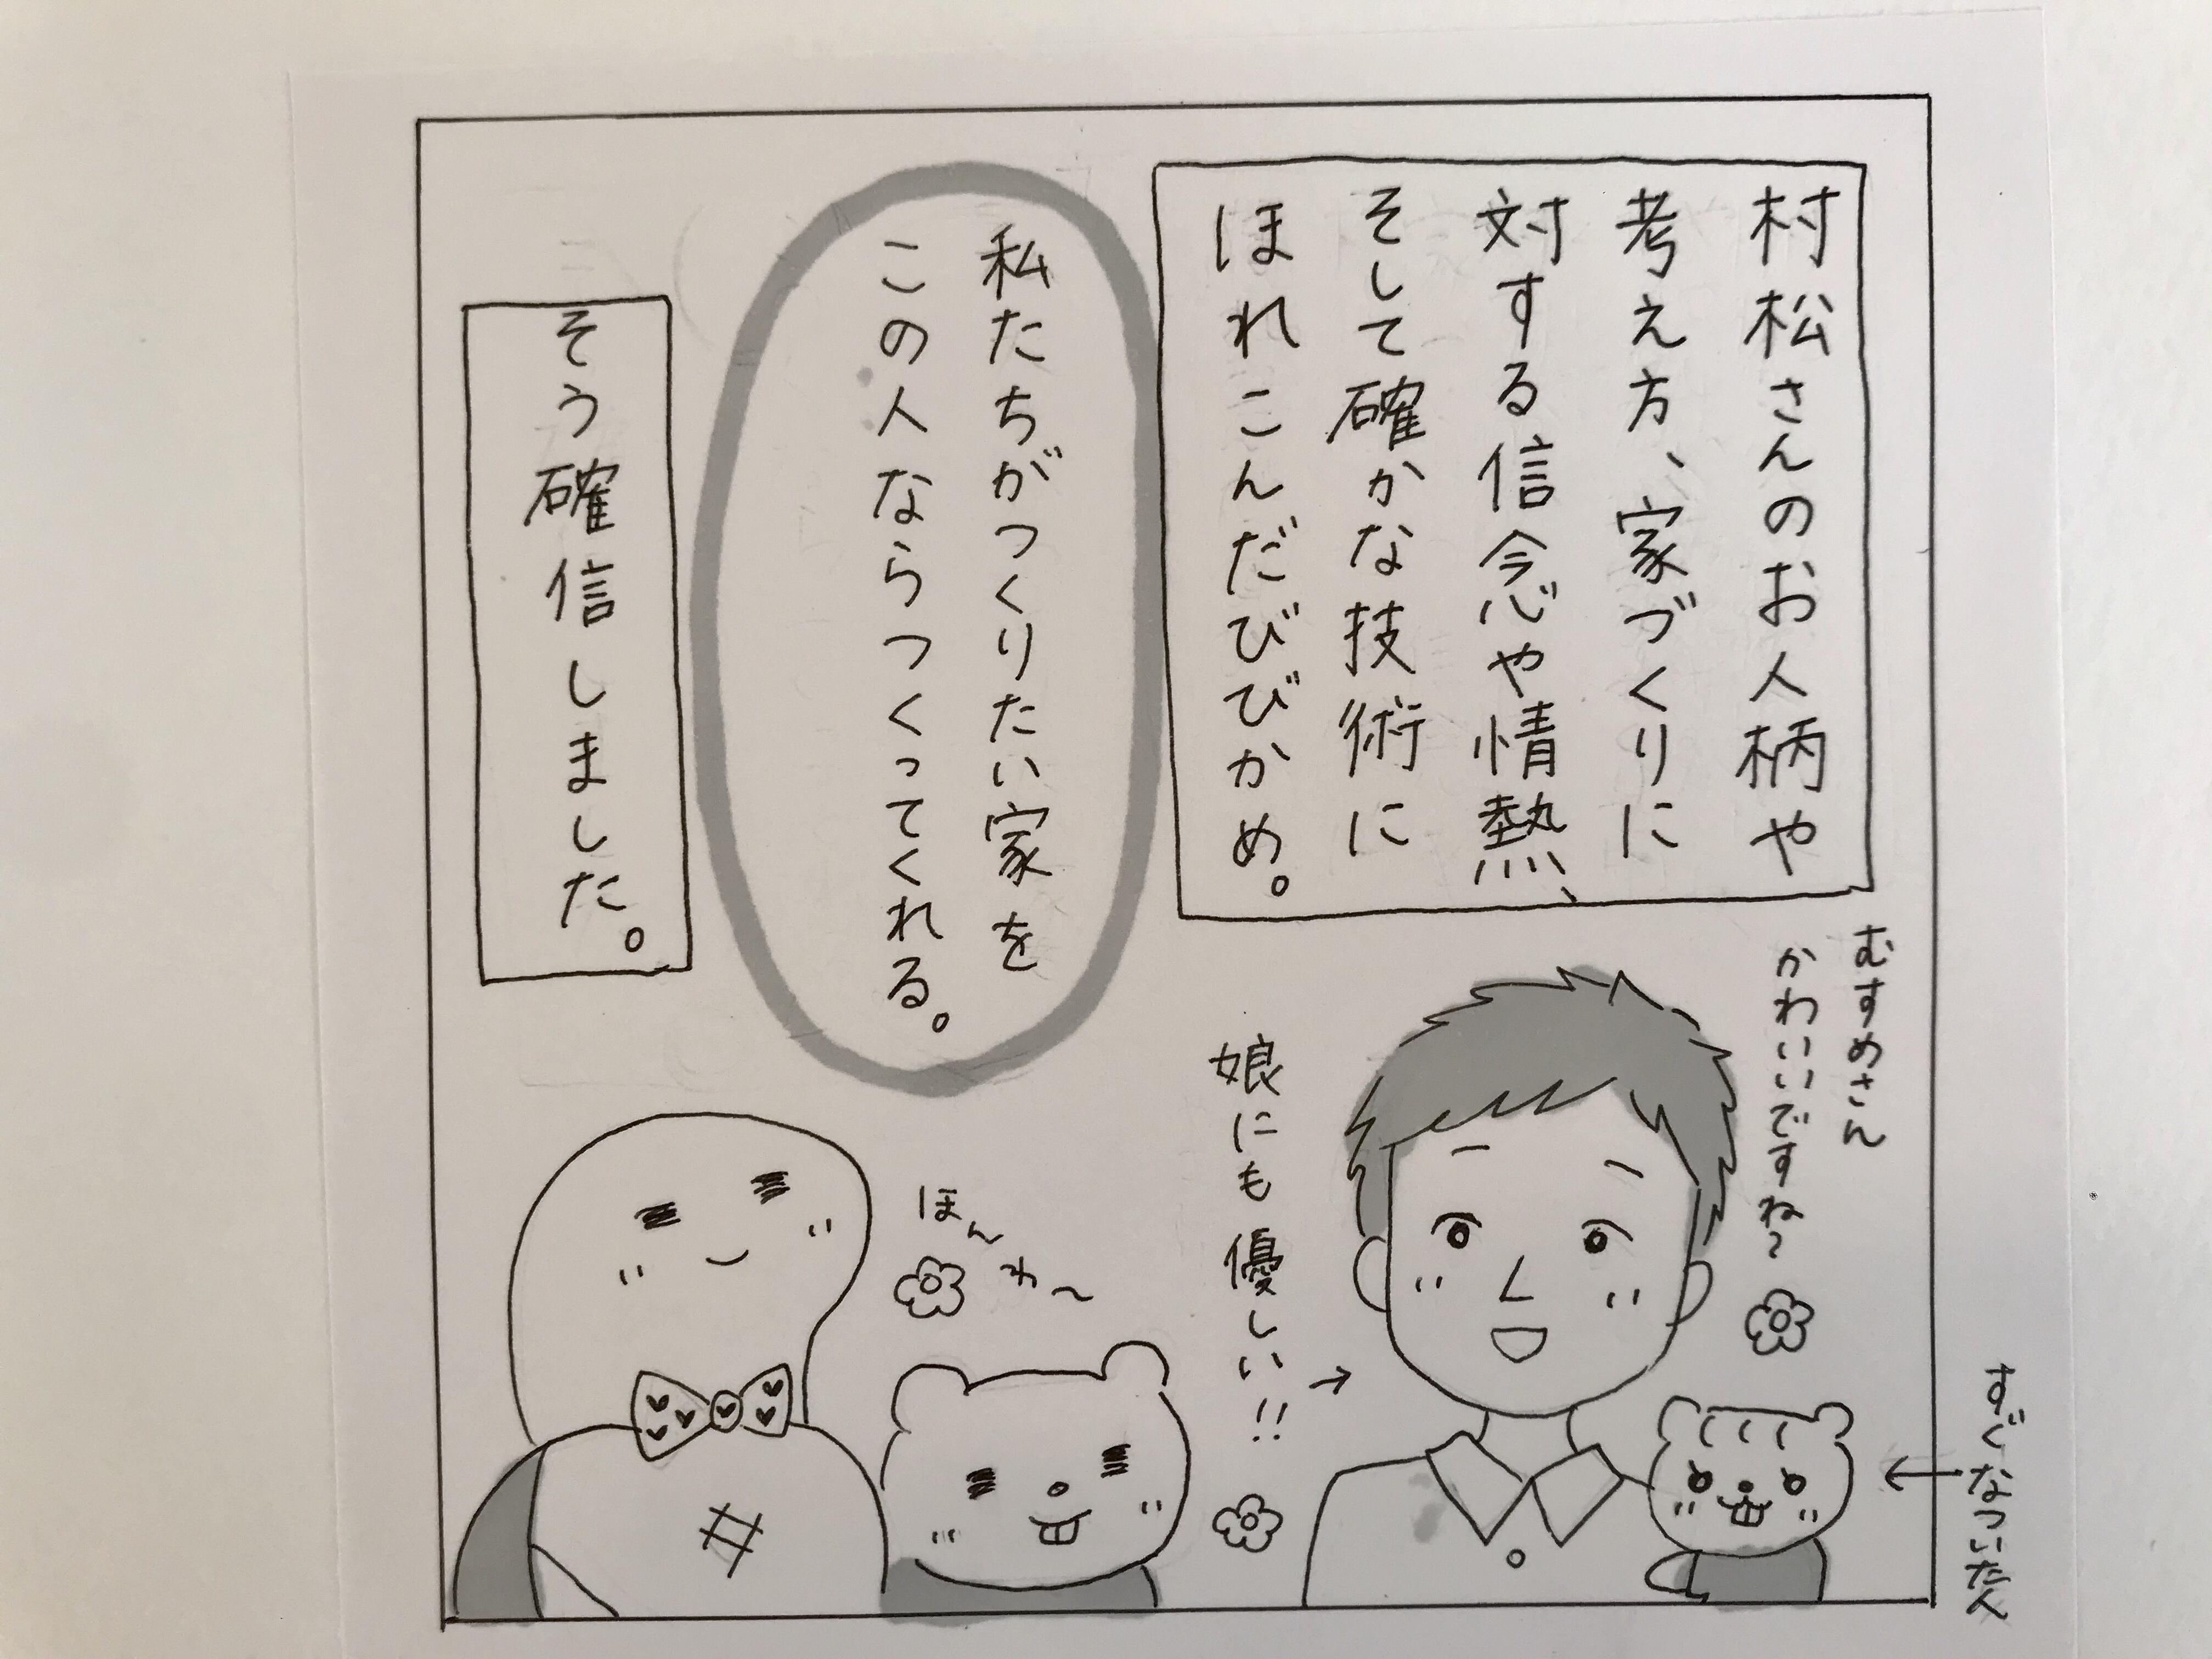 村松さんのお人柄や
考え方、家づくりに
対する信念や情熱、
そして確かな技術に
ほれこんだびびかめ。
私たちがつくりたい家を
この人ならつくってくれる。
そう確信しました。
むすめさん
かわいいですね〜
すぐなついた人
娘にも優しい!!
ほんわ〜